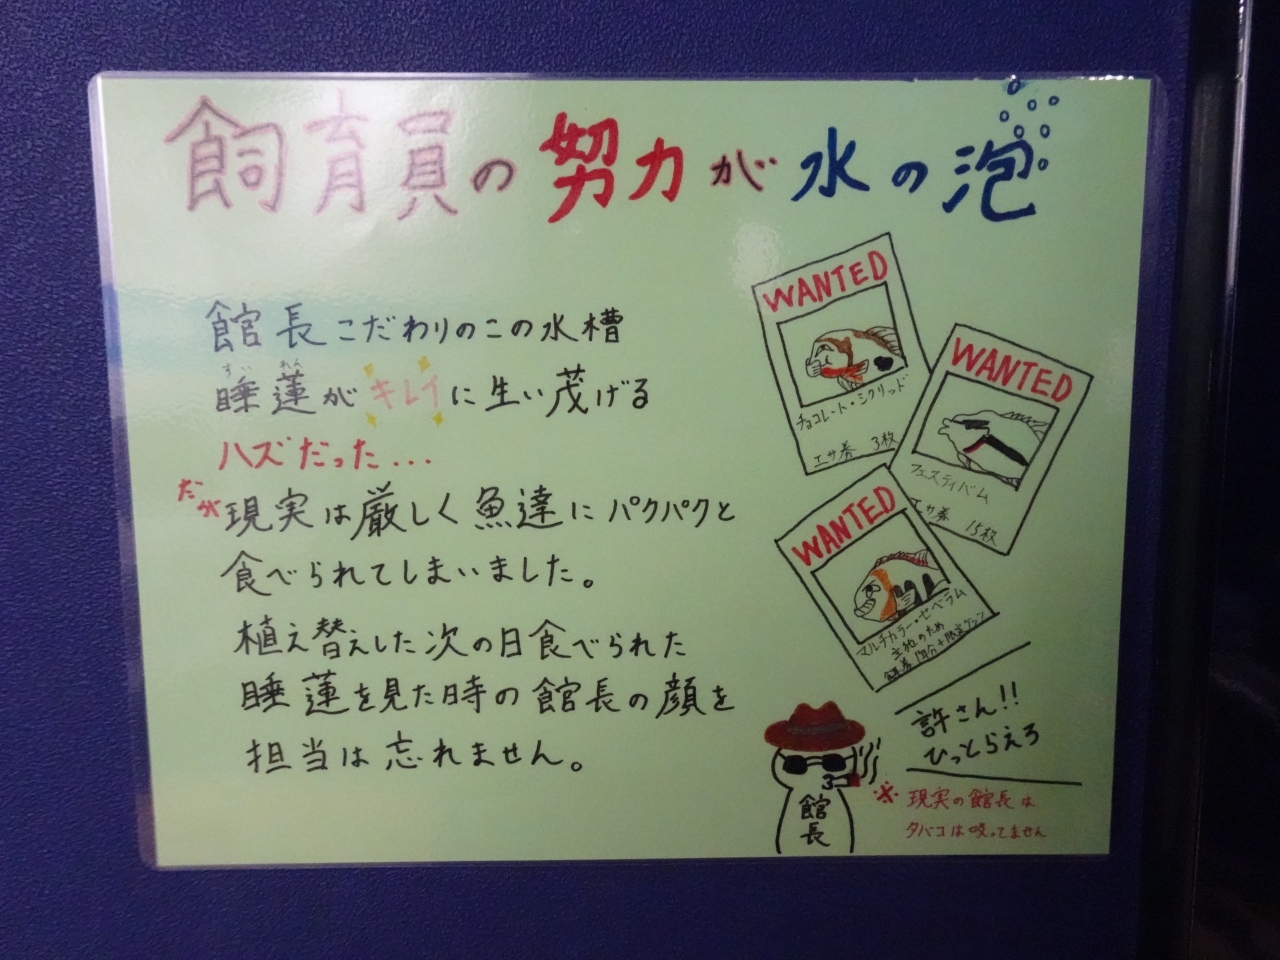 飼育員の努力が水の泡
館長こだわりのこの水槽
すい れん
睡蓮がキレイに生い茂げる
ハズだった...
だが
現実は厳しく魚達にパクパクと
食べられてしまいました。
植え替えした次の日食べられた
睡蓮を見た時の館長の顔を
担当は忘れません。
WANTED
チョコレート・シクリッド
エサ券 3枚
WANTED
フェスティバム
エサ券 15枚
WANTED
マルチカラー・ゼベラム
主犯のため
1年分+限定
許さん!!
ひっとらえろ
館長
※現実の館長は
タバコは咬ってません